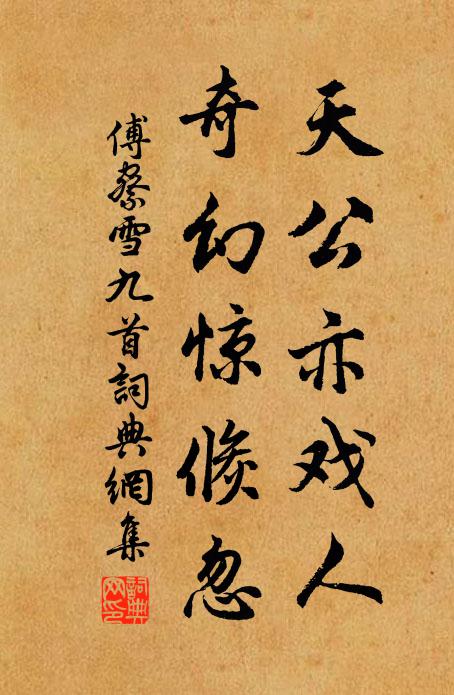 天公亦戏人
奇幻惊倏忽
傅察雪九首詞典網集
詞典
网印